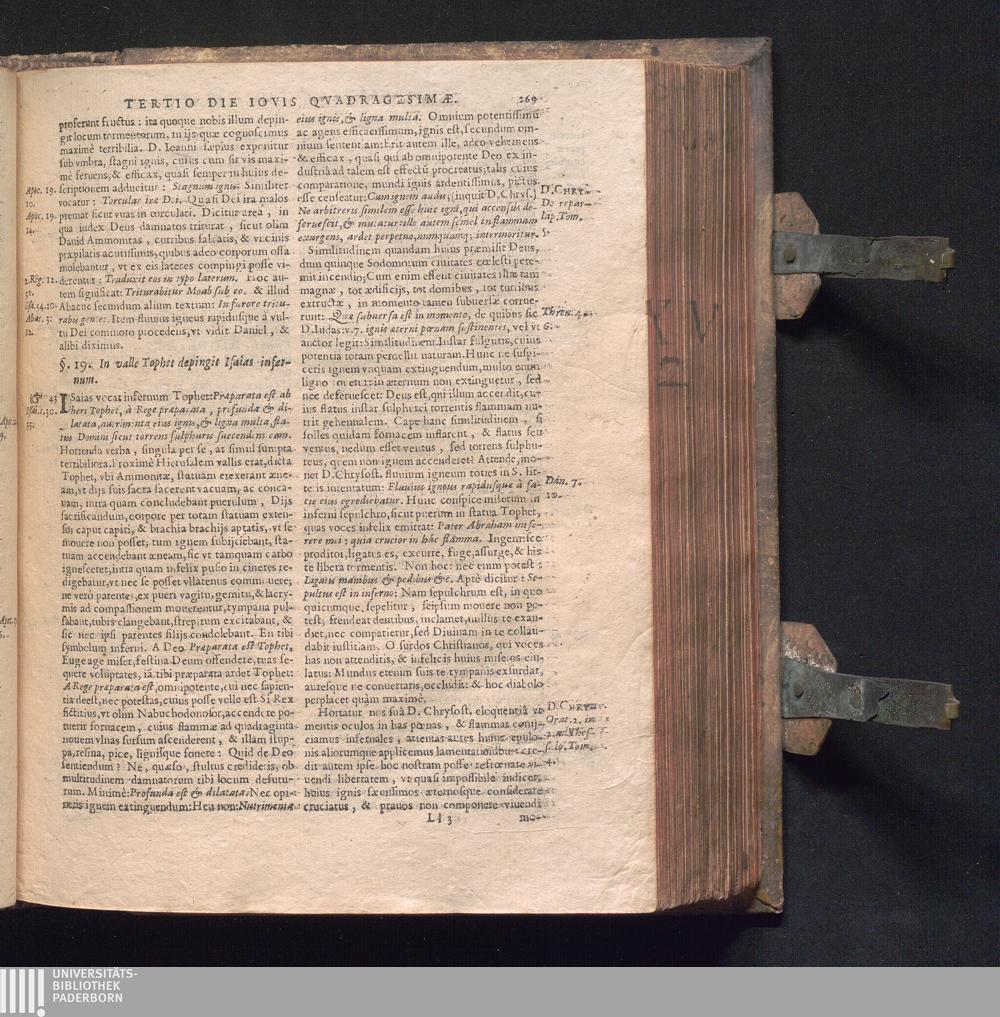 TERTIO DIE IOVIS QVADRAGESIMÆ. 269
proferunt fructus : ita quoque nobis illum depin-
git locum tormentorum, in ijs quæ cognoscimus
maximè terribilia. D. Ioanni sæpius exponitur
sub vmbra, stagni ignis, cuius cum sit vis maxi-
mè feruens, & efficax, quasi semper in huius de-
scriptionem adducitur : Stagnum ignis. Similiter
vocatur : Torcular iræ D.i. Quasi Dei ira malos
premat sicut vuas in torculari. Dicitur area, in
qua iudex Deus damnatos triturat, sicut olim
Dauid Ammonitas, curribus falcatis, & vicinis
præpilatis acutissimis, quibus adeo corporum ossa
molebantur, vt ex eis lateres compingi posse vi-
derentur : Traduxit eos in typo laterum. Hoc au-
tem significat: Triturabitur Moab sub eo. & illud
Abacuc secundum alium textum: In furore tritu-
rabis gentes. Item fluuius igneus rapidusque à vul-
tu Dei commoto procedens, vt vidit Daniel, &
alibi diximus.
Apoc. 19.
10.
Apoc. 19.
14.
2. Reg. 12.
31.
Isa. 14. 10.
Abac. 3:
12.
§. 19. In valle Tophet depingit Isaias infer-
num.
43 ISaias vocat infernum Tophet: Præparata est ab
heri Tophet, à Rege præparata, profunda & di-
latata, nutrimenta eius ignis, & ligna multa, fla-
tus Domini sicut torrens sulphuris succendens eam.
Horrenda verba, singula per se, at simul sumpta
terribiliora. Proximè Hierusalem vallis erat, dicta
Tophet, vbi Ammonitæ, statuam erexerant æne-
am, vt dijs suis sacra facerent vacuam, ac conca-
uam, intra quam concludebant puerulum, Dijs
sacrificandum, corpore per totam statuam exten-
so, caput capiti, & brachia brachijs aptatis, vt se
mouere non posset; tum ignem subijciebant, sta-
tuam accendebant æneam, sic vt tamquam carbo
ignesceret, intra quam infelix pusio in cineres re-
digebatur, vt nec se posset vllatenus commouere;
ne verò parentes, ex pueri vagitu, gemitu, & lacry-
mis ad compassionem mouerentur, tympana pul-
sabant, tubis clangebant, strepitum excitabant, &
sic nec ipsi parentes filijs condolebant. En tibi
symbolum inferni. A Deo Præparata est Tophet,
Euge age miser, festina Deum offendere, tuas se-
quere voluptates, iã tibi præparata ardet Tophet:
A Rege præparata est, omnipotente, cui nec sapien-
tia deest, nec potestas, cuius posse velle est Si Rex
fictitius, vt olim Nabuchodonosor, accendere po-
tuerit fornacem, cuius flammæ ad quadraginta
nouem vlnas sursum ascenderent, & illam stup-
pa, resina, pice, lignisque fouere : Quid de Deo
sentiendum ? Ne, quæso, stultus credideris, ob
multitudinem damnatorum tibi locum defutu-
rum. Minimè: Profunda est & dilatata. Nec opi-
neris ignem extinguendum: Heu non: Nutrimenta
Isai. 1. 30.
33.
eius ignis, & ligna multa. Omnium potentissimũ
ac agens efficacissimum, ignis est, secundum om-
nium sententiam: Erit autem ille, adeo vehemens
& efficax, quasi qui ab omnipotente Deo ex in-
dustria ad talem est effectũ procreatus; talis cuius
comparatione, mundi ignis ardentissimus, pictus
esse censeatur: Cum ignem audis; (inquit D. Chrys.)
Ne arbitreris similem esse huic igni, qui accensus de-
feruescit, & mutatur: ille autem semel inflammam
exurgens, ardet perpetuo, numquamq; intermoritur.
Similitudinem quandam huius præmisit Deus,
dum quinque Sodomorum ciuitates cœlesti pere-
mit incendio; Cum enim essent ciuitates istæ tam
magnæ, tot ædificijs, tot domibus, tot turribus
extructæ, in momento tamen subuersæ corrue-
runt: Quæ subuersa est in momento, de quibus sic
D. Iudas: v. 7. ignis æterni pœnam sustinentes, vel vt
auctor legit: Similitudinem. Instar fulguris, cuius
potentia totam percellit naturam. Hunc ne suspi-
ceris ignem vnquam extinguendum, multo enim
ligno fouetur: in æternum non extinguetur, sed
nec deferuescet: Deus est, qui illum accendit, cu-
ius flatus instar sulphurei torrentis flammam nu-
trit gehennalem. Cape hanc similitudinem, si
folles quidam fornacem inflarent, & flatus seu
ventus, nedum esset ventus, sed torrens sulphu-
reus, quem non ignem accenderet? Attende, mo-
net D. Chrysost. fluuium igneum toties in S. lit-
teris intentatum: Fluuius igneus rapidusque à fa-
cie eius egrediebatur. Hunc conspice miserum in
inferni sepulchro, sicut puerum in statua Tophet,
quas voces infelix emittat: Pater Abraham mise-
rere mei : quia crucior in hâc flamma. Ingemisce
proditor, ligatus es, excurre, fuge, assurge, & his
te libera tormentis. Non hoc: nec enim potest :
Ligatis manibus & pedibus &c. Aptè dicitur : Se-
pultus est in inferno: Nam sepulchrum est, in quo
quicumque, sepelitur, seipsum mouere non po-
test; frendeat dentibus, inclamet, nullus te exau-
diet, nec compatietur, sed Diuinam in te collau-
dabit iustitiam. O surdos Christianos, qui voces
has non attenditis, & infelicis huius miseros eiu-
latus: Mundus etenim suis te tympanis exsurdat,
auresque ne conuertaris, occludit: & hoc diabolo
perplacet quàm maximè.
Hortatur nos suâ D. Chrysost. eloquentiâ vt
mentis oculos in has pœnas, & flammas conij-
ciamus infernales, attentas aures huius epulo-
nis aliorumque applicemus lamentationibus: cre-
dit autem ipse hoc nostram posse refrœnare vi-
uendi libertatem, vt quasi impossibile indicet,
huius ignis sæuissimos æternosque considerare
cruciatus, & prauos non componere viuendi
D. CHRY-
De repar-
lap. Tom.
5.
Thren. 4.
6.
Dan. 7.
10.
D. CHRYS.
Orat. 2. in
2. ad Thes-
s. lp. Tom.
4.
Ll 3 mo-
UNIVERSITÄTS-
BIBLIOTHEK
PADERBORN